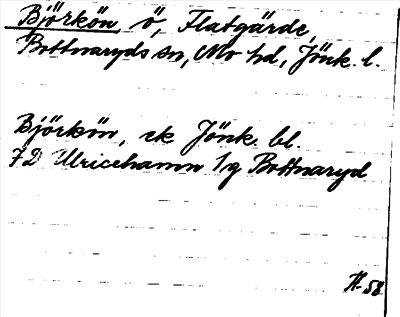 Björkön ö, Flatgärde,
Bottnaryds sn, Mo hd, Jönk. l.
Björkön, ek Jönk. bl.
7D Ulricehamn 1g Bottnaryd
58